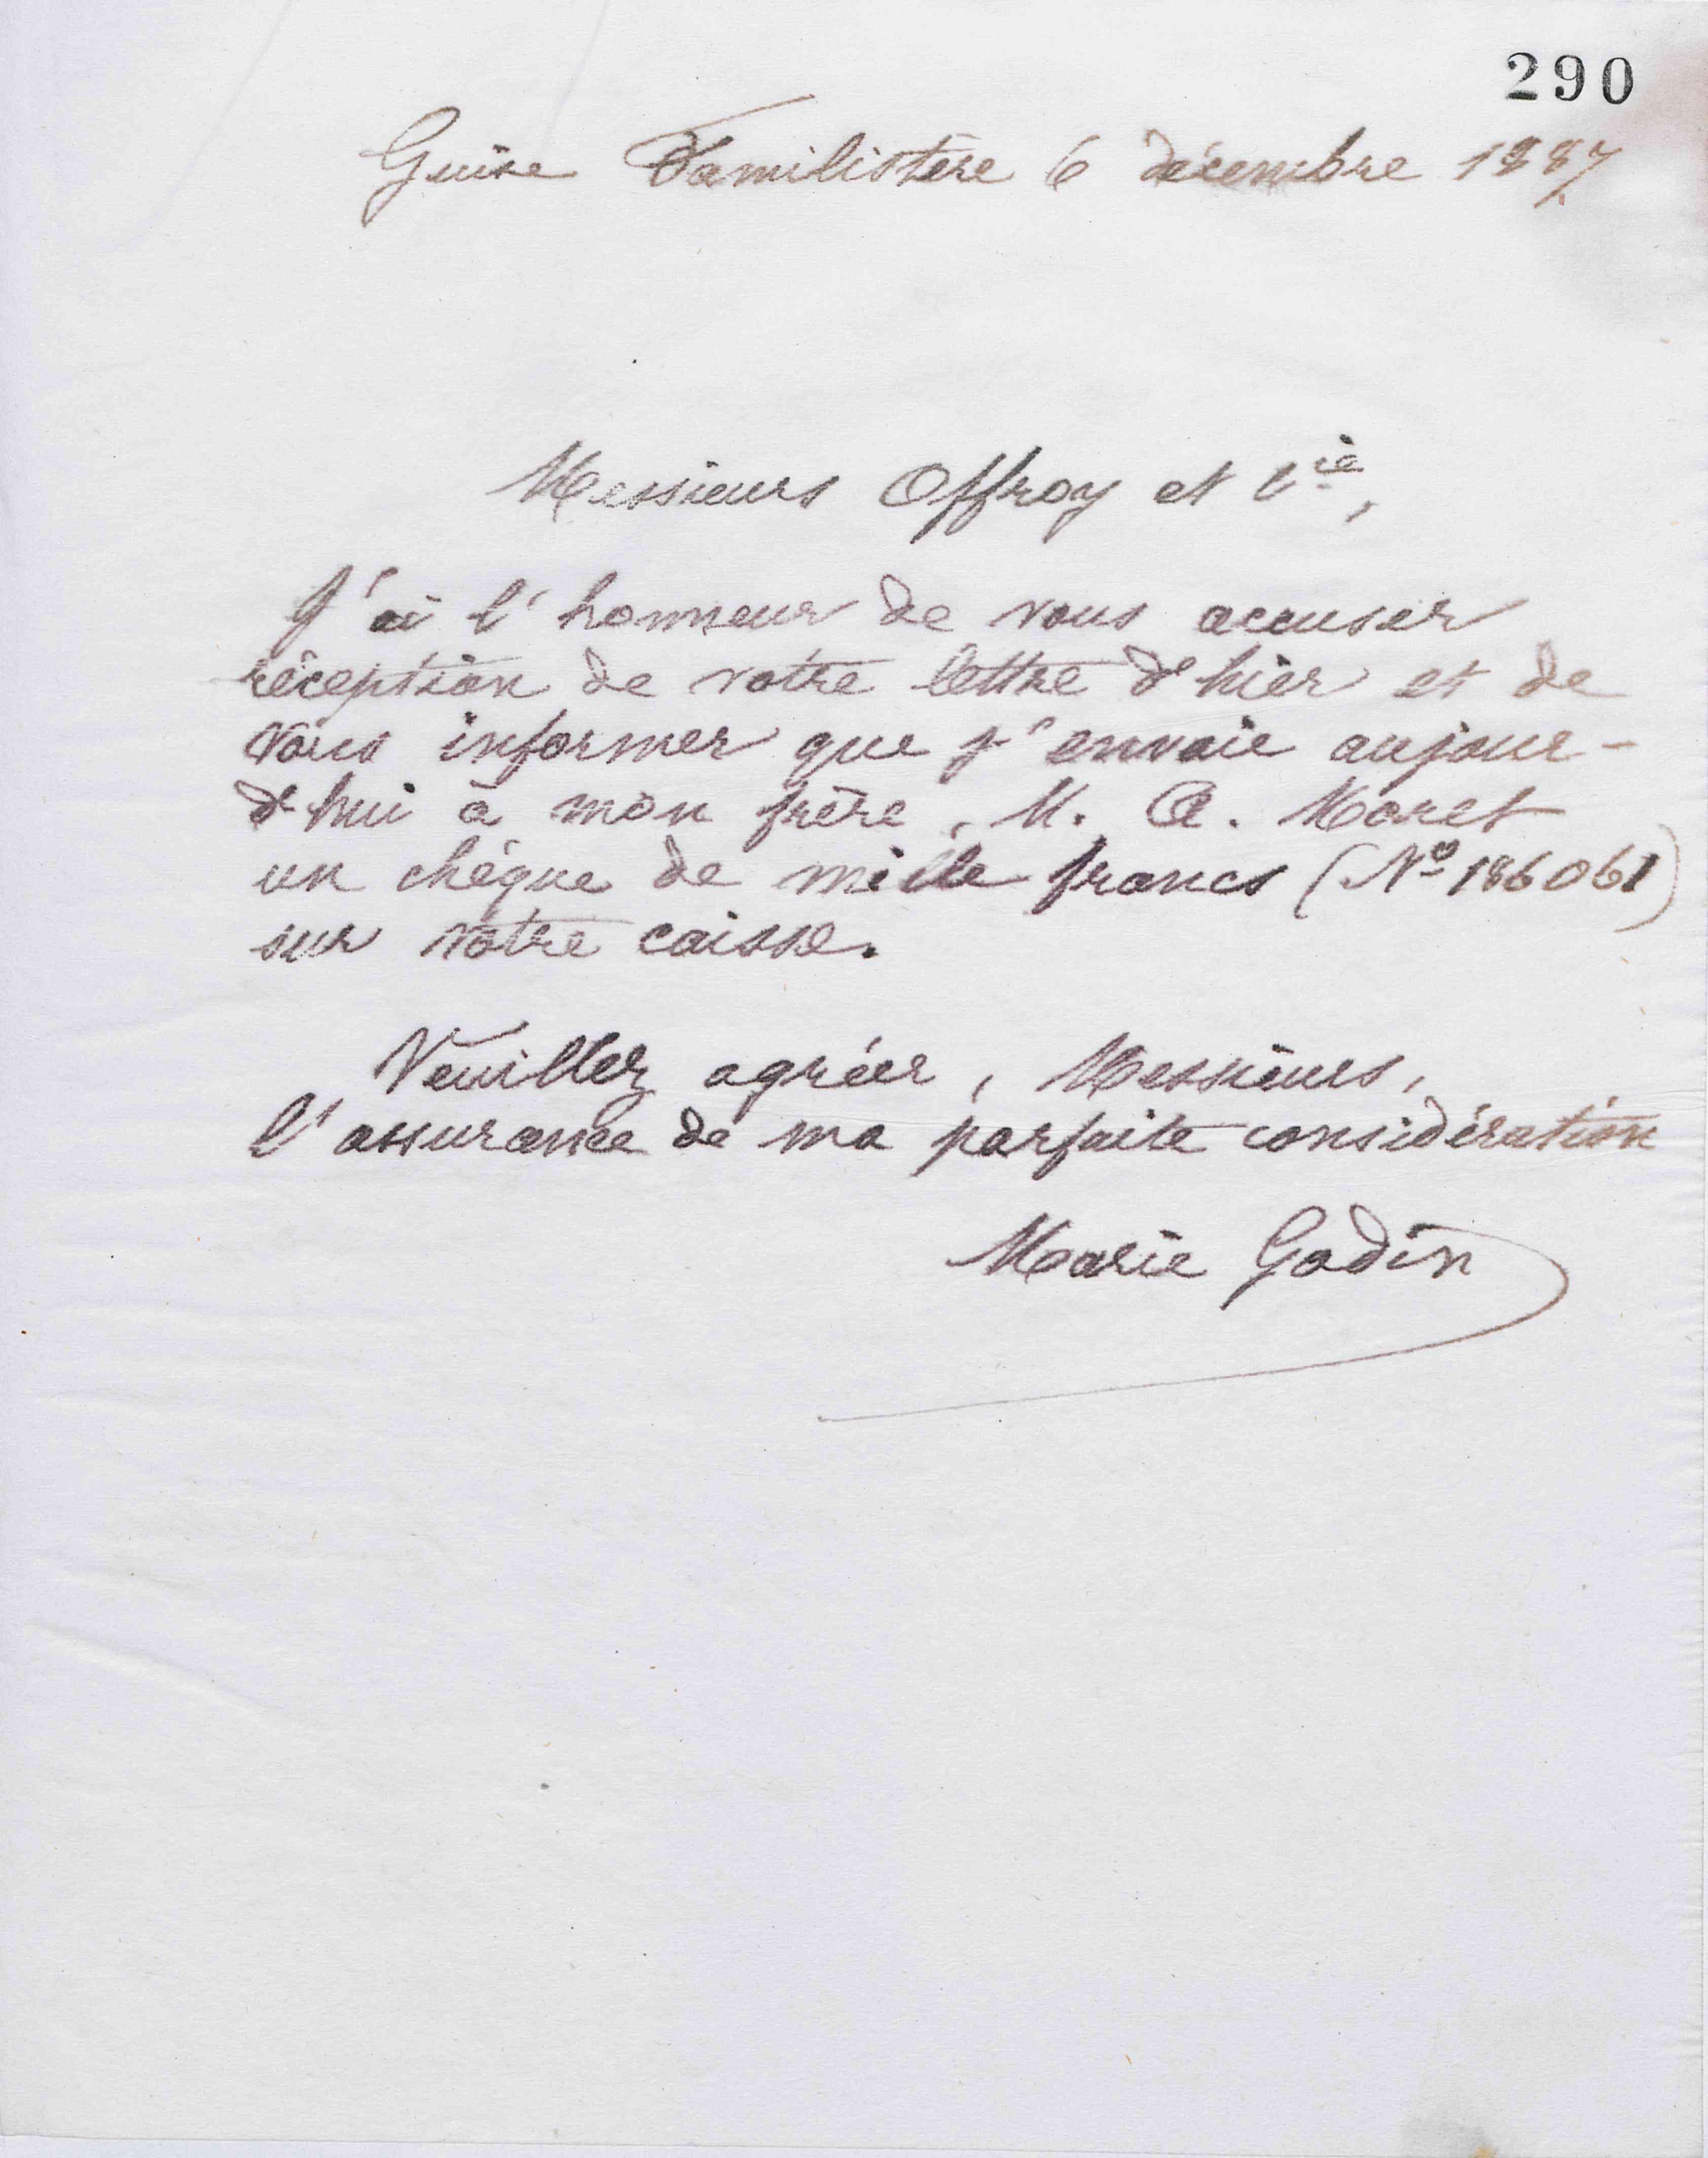 290
Guise Familistère 6 décembre 1887
Messieurs Offroy et Cie,
J'ai l'honneur de vous accuser
réception de votre lettre d'hier et de
vous informer que j'envoie aujour-
d'hui à mon frère, M. A. Moret
un chèque de mille francs (No 186061)
sur votre caisse.
Veuillez agréer, Messieurs,
l'assurance de ma parfaite considération
Marie Godin